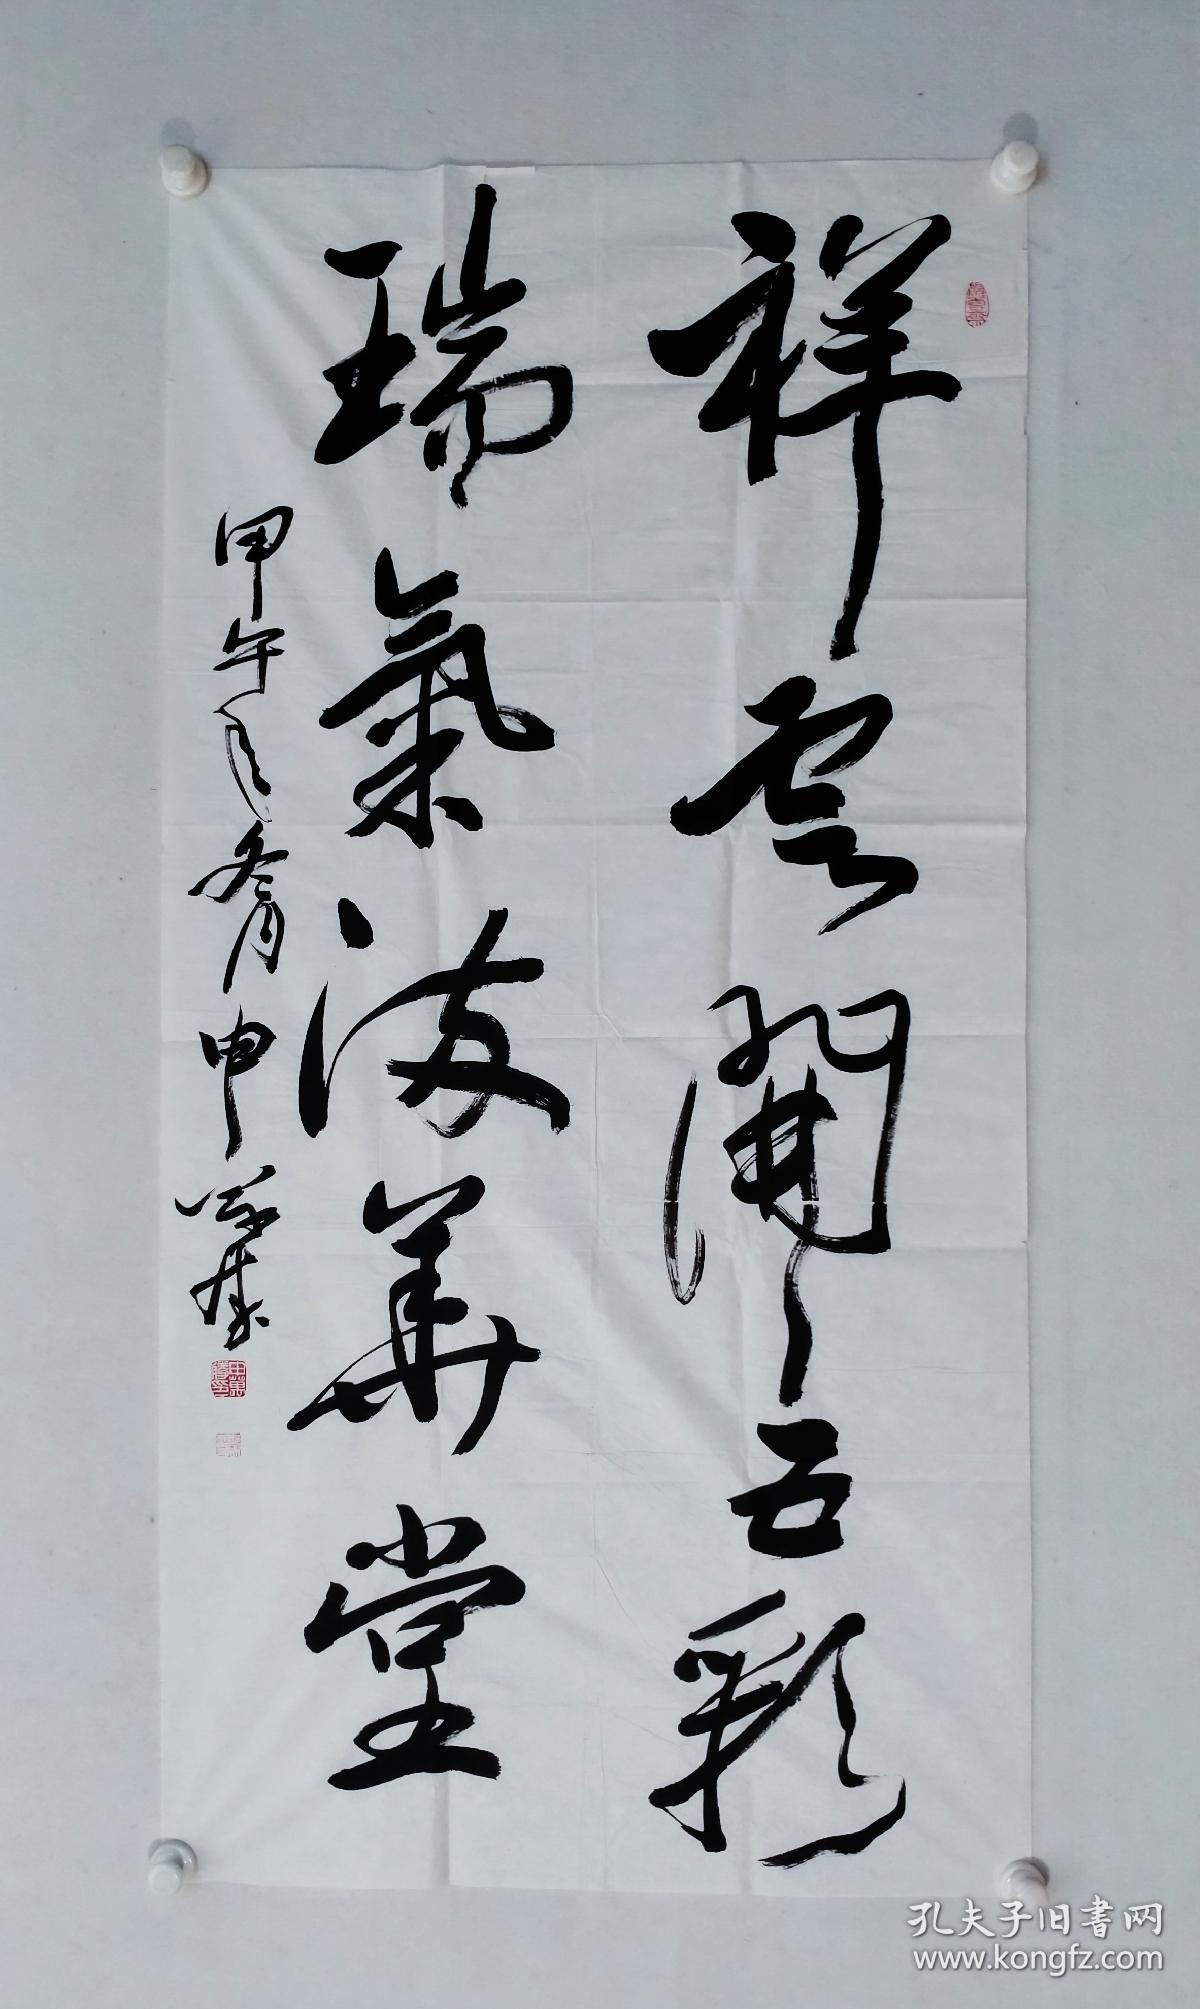 祥云開五彩
瑞氣滿華堂
甲午年冬月申
孔夫子旧書网
www.kongfz.com